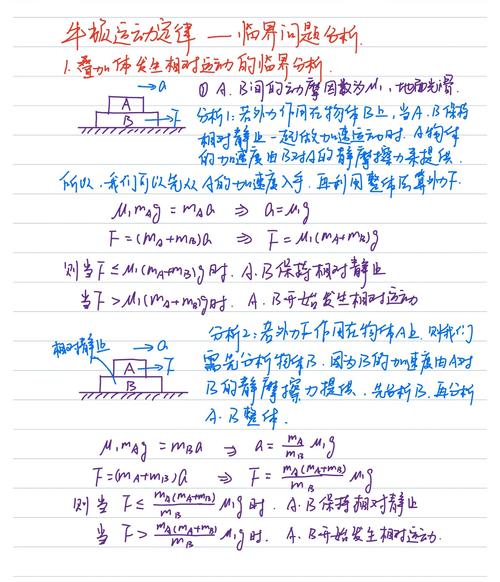 牛顿运动定律 — 临界问题分析.
1. 叠加体发生相对运动的临界分析.
→a
A
B →F
① A.B间的动摩因数为μ₁,地面光滑.
分析1:若外力作用在物体B上,当A.B保持
相对静止一起做加速运动时.A物体
的加速度由B对A的静摩擦力来提供.
所以,我们可以先从A的加速度入手.再利用整体法算外力F.
μ₁mAg = mAa ⇒ a=μ₁g
F=(mA+mB)a ⇒ F=μ₁(mA+mB)g
则当F≤μ₁(mA+mB)g时.A.B保持相对静止
当F>μ₁(mA+mB)g时.A.B开始发生相对运动
相对静止 →a
A →F
B
分析2:若外力F作用在物体A上.则我们
需先分析物体B.因为B的加速度由A对
B的静摩擦力提供.先分析B.再分析
A.B整体.
μ₁mAg = mBa ⇒ a=mA/mB μ₁g
F=(mA+mB)a ⇒ F=mA(mA+mB)/mB μ₁g
则当 F≤ mA(mA+mB)/mB μ₁g时.A.B保持相对静止
当 F> mA(mA+mB)/mB μ₁g时.A.B开始发生相对运动.